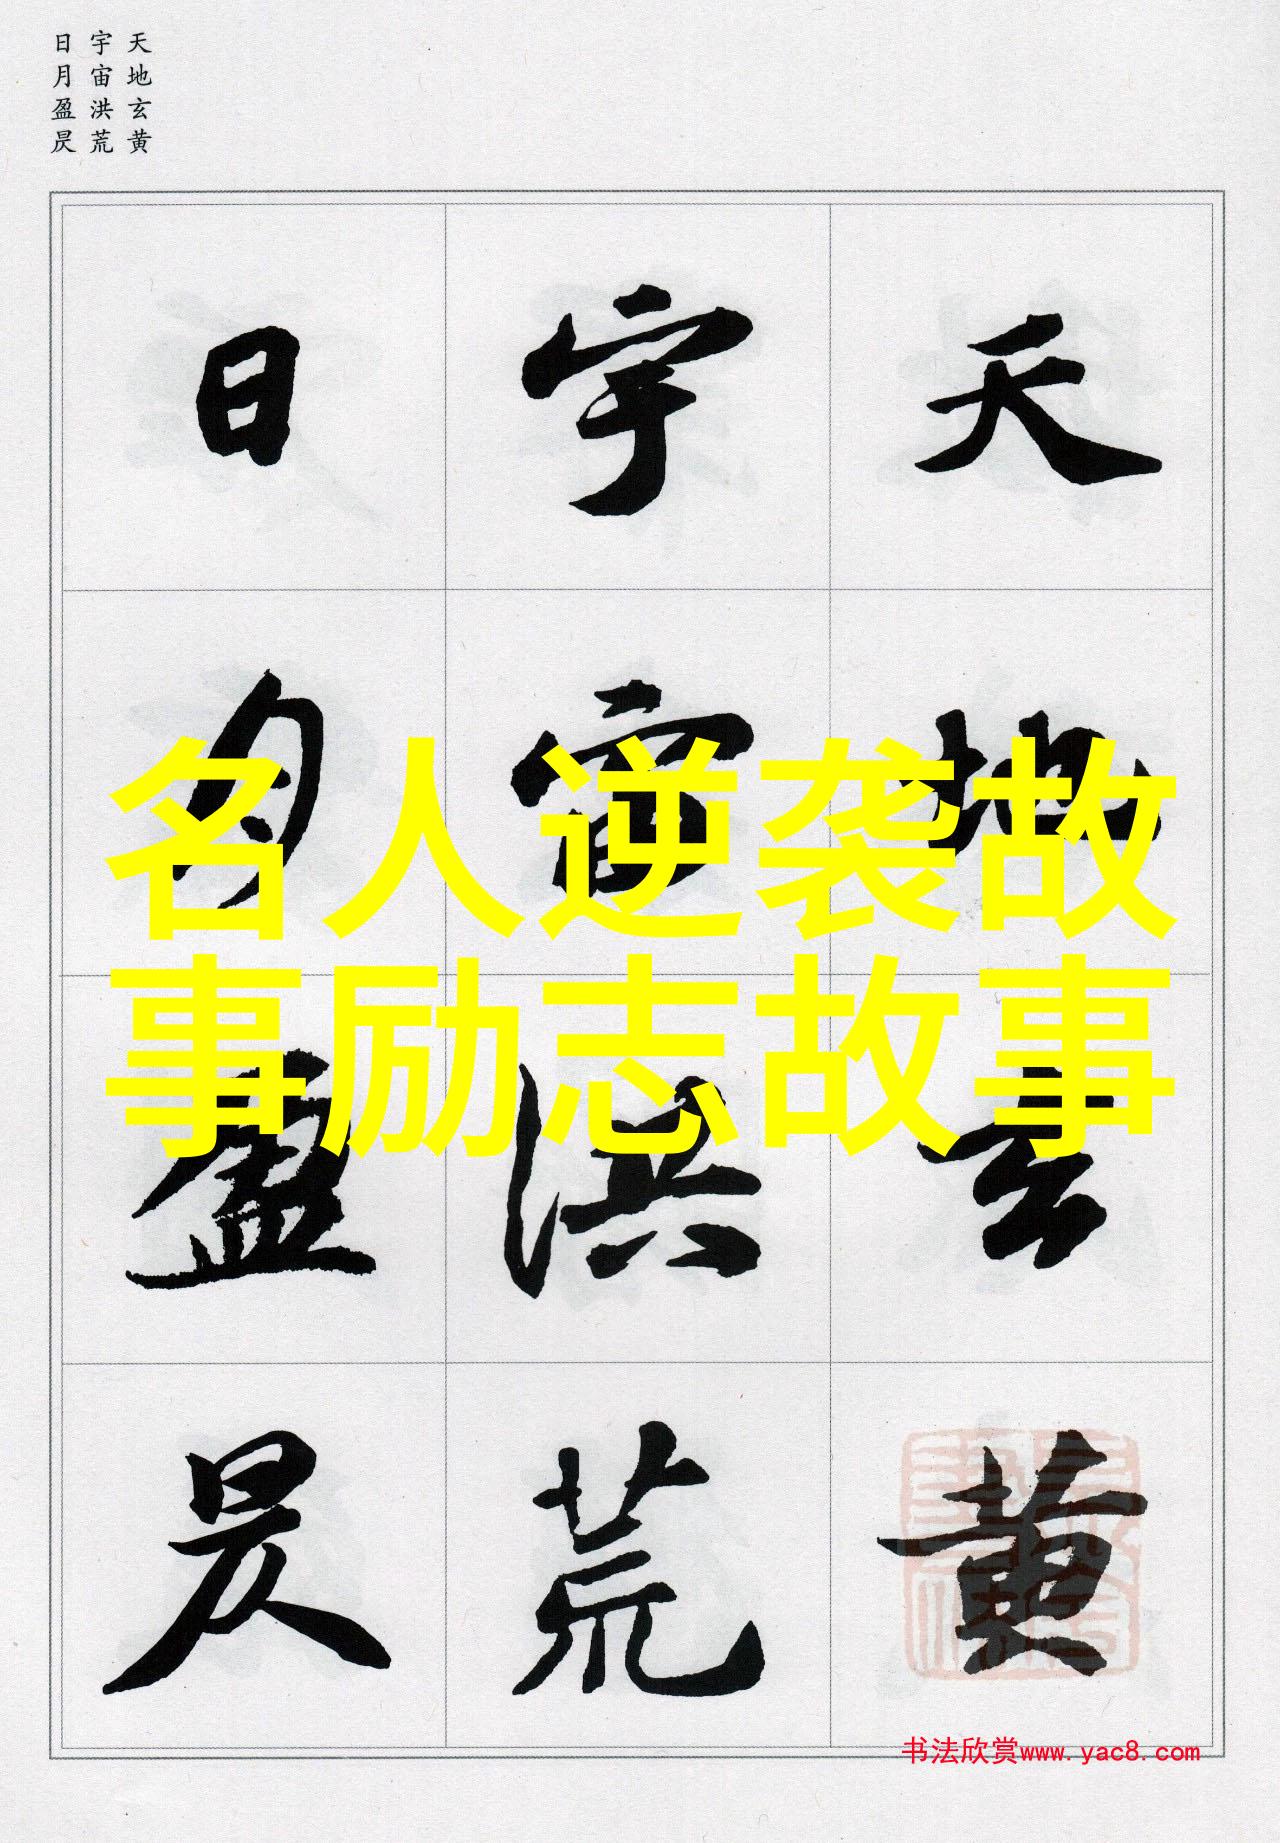 天地玄黄
宇宙洪荒
日月盈昃
天地玄黄
宇宙洪荒
日月盈昃
名人逆袭故
事励志故事
书法欣赏www.yac8.com